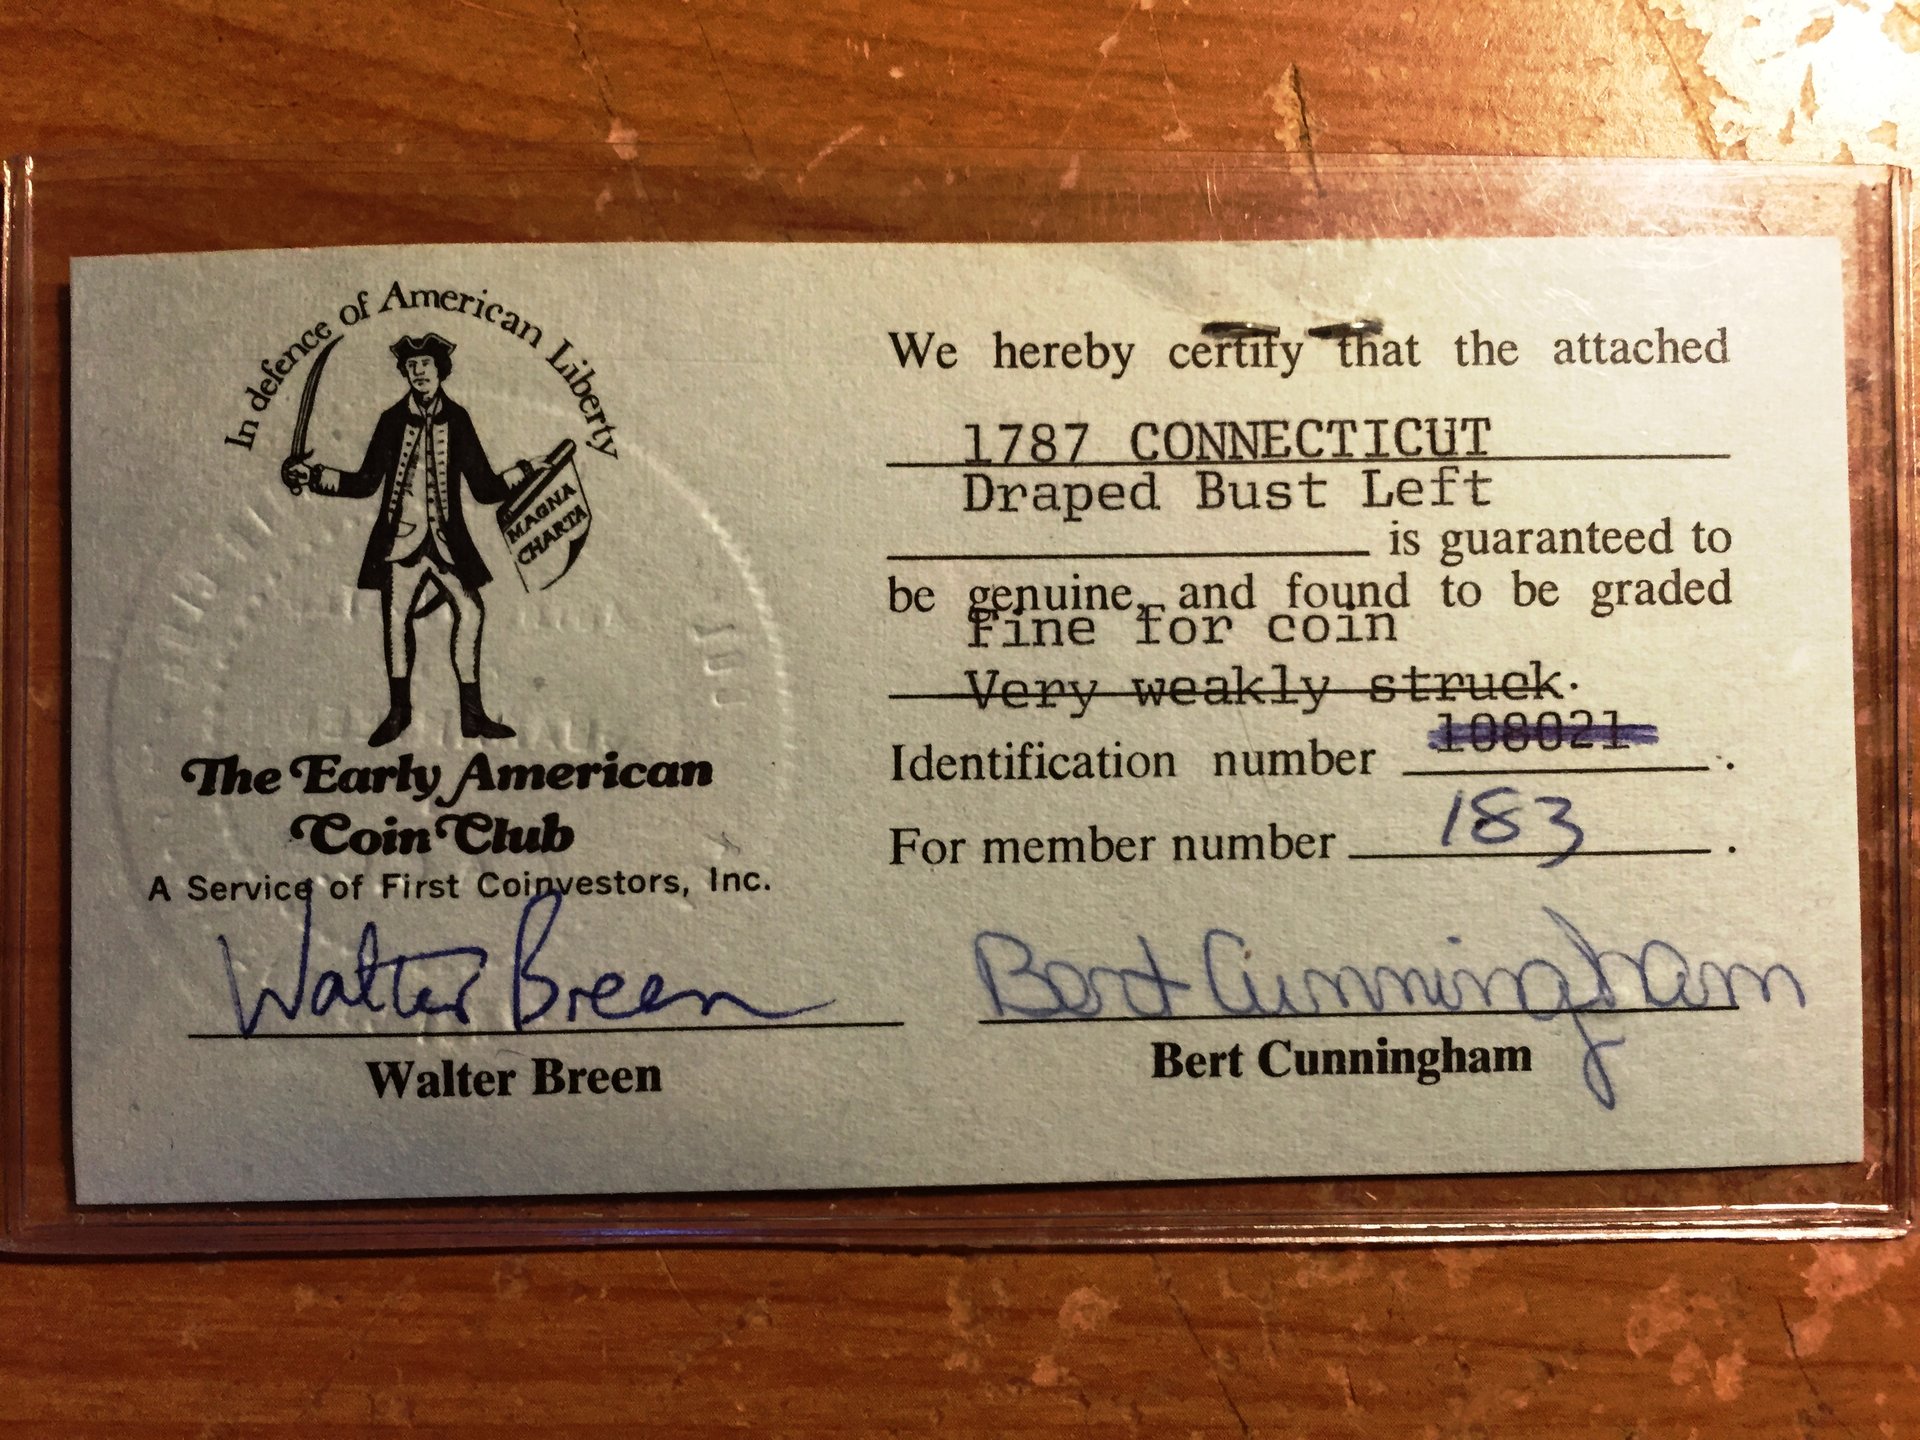 In defence of American Liberty
MAGNA
CHARTA
The Early American
Coin Club
A Service of First Coinvestors, Inc.
Walter Breen
Walter Breen
We hereby certify that the attached
1787 CONNECTICUT
Draped Bust Left
is guaranteed to
be genuine, and found to be graded
Fine for coin
Very weakly struck.
Identification number 108021.
For member number 183.
Bert Cunningham
Bert Cunningham